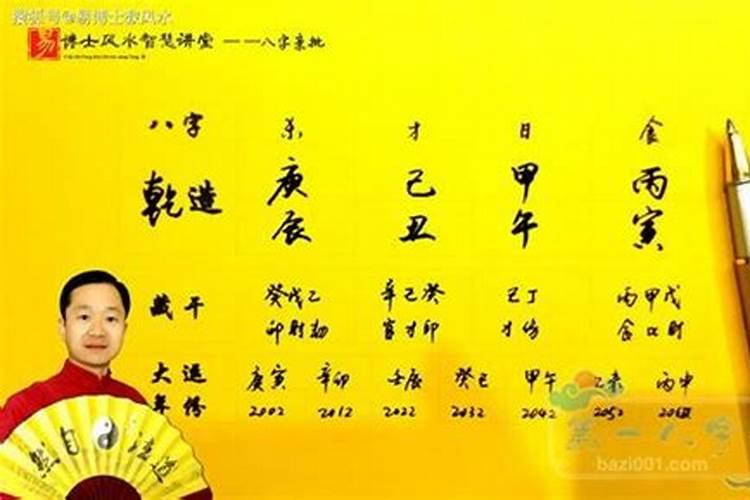 搜狐号@易博士家风水
易 博士风水智慧讲堂 ——八字亲批
八字 杀 才 日 食
乾造 庚 己 甲 丙
辰 丑 午 寅
藏干 癸戊乙 辛己癸 己丁 丙甲戊
印财劫 官才印 才伤 食比财
大运 庚寅 辛卯 壬辰 癸巳 甲午 乙未 丙申
年份 2002 2012 2022 2032 2042 2052
然自 法道
第一八字
bazi001.com